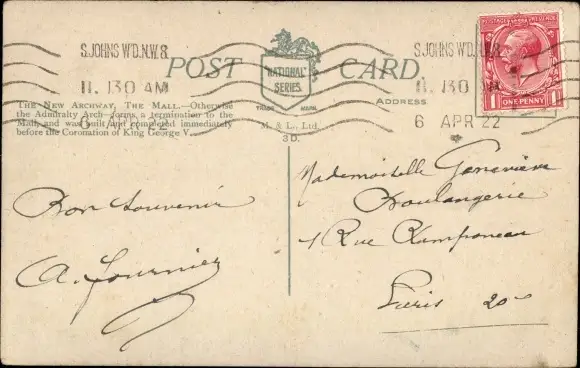 S.JOHNS W'D.N.W.8.
11.130 AM
6 APR 22
POST CARD
NATIONAL
SERIES
TRADE MARK
M. & L., Ltd.
3D.
The New Archway, The Mall.—Otherwise
the Admiralty Arch—forms a termination to the
Mall, and was built and completed immediately
before the Coronation of King George V.
Bon Souvenir
A. Fournier
S.JOHNS W'D.N.W.8.
11.130 AM
6 APR 22
POSTAGE REVENUE
ONE PENNY
Address
Mademoiselle Geneviève
Boulangerie
1 Rue Ramponeau
Paris 20e